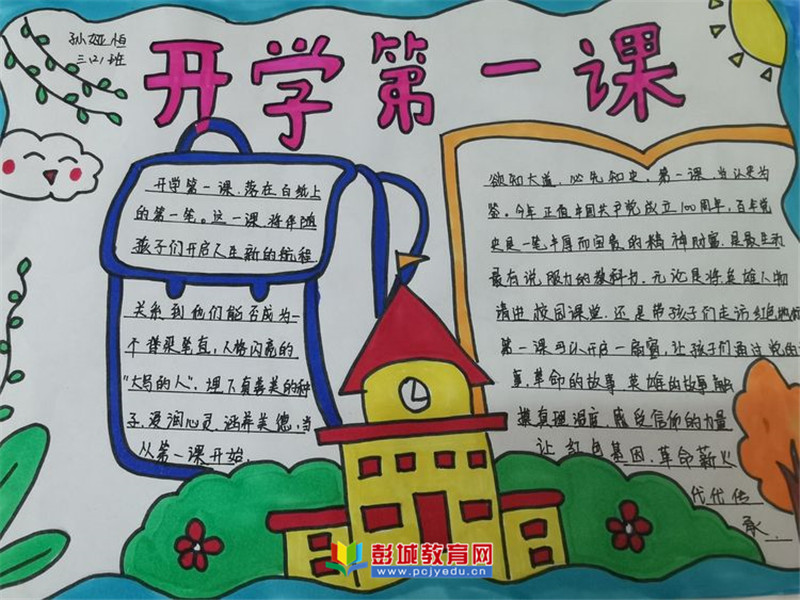 孙娅恒
三(2)班
开学第一课
开学第一课,落在白纸上
的第一笔。这一课将伴随
孩子们开启人生新的航程
关系到他们能否成为一
个脊梁笔直,人格闪亮的
"大写的人",埋下真善美的种
子,浸润心灵,涵养美德,当
从第一课开始.
欲知大道,必先知史,第一课,当以史为
鉴。今年正值中国共产党成立100周年,百年党
史是一笔丰厚而宝贵的精神财富,是最生动
最有说服力的教科书,无论是将英雄人物
请进校园课堂,还是带孩子们走访红色地
第一课可以开启一扇窗,让孩子们通过党的
事,革命的故事英雄的故事,触
摸真理温度,感受信仰的力量
让红色基因,革命薪火
代代传
承.
彭城教育网
www.pcjyedu.cn